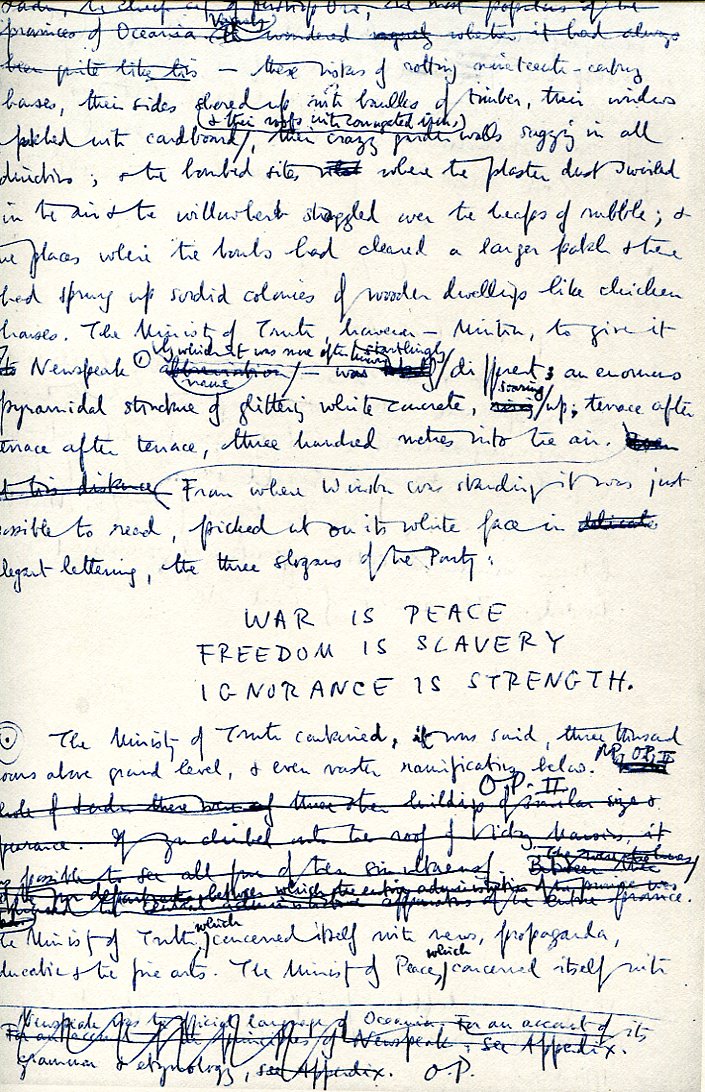 provinces of Oceania. wondered vaguely whether it had always
been quite like this — these vistas of rotting nineteenth-century
houses, their sides shored up with baulks of timber, their windows
(& their roofs with corrugated iron,)
patched with cardboard, their crazy garden walls sagging in all
directions; & the bombed sites where the plaster dust swirled
in the air & the willowherb straggled over the heaps of rubble; &
the places where the bombs had cleared a larger patch & there
had sprung up sordid colonies of wooden dwellings like chicken
houses. The Ministry of Truth, however — Minitru, to give it
startlingly
Newspeak abbreviation / — was / different; an enormous
name soaring
pyramidal structure of glittering white concrete, / up, terrace after
terrace after terrace, three hundred metres into the air.
at this distance From where Winston was standing it was just
possible to read, picked out on its white face in delicate
elegant lettering, the three slogans of the Party:
WAR IS PEACE
FREEDOM IS SLAVERY
IGNORANCE IS STRENGTH.
The Ministry of Truth contained, it was said, three thousand
rooms above ground level, & even vaster ramifications below.
O.P. II
whole of London there were three other buildings of similar size &
appearance. If you climbed onto the roof of Victory Mansions, it
possible to see all four of them simultaneously. Between these
the Ministry of Truth, which concerned itself with news, propaganda,
education & the fine arts. The Ministry of Peace, which concerned itself with
Newspeak was the official language of Oceania. For an account of its
Newspeak, see Appendix.
grammar & etymology, see Appendix. O.P.